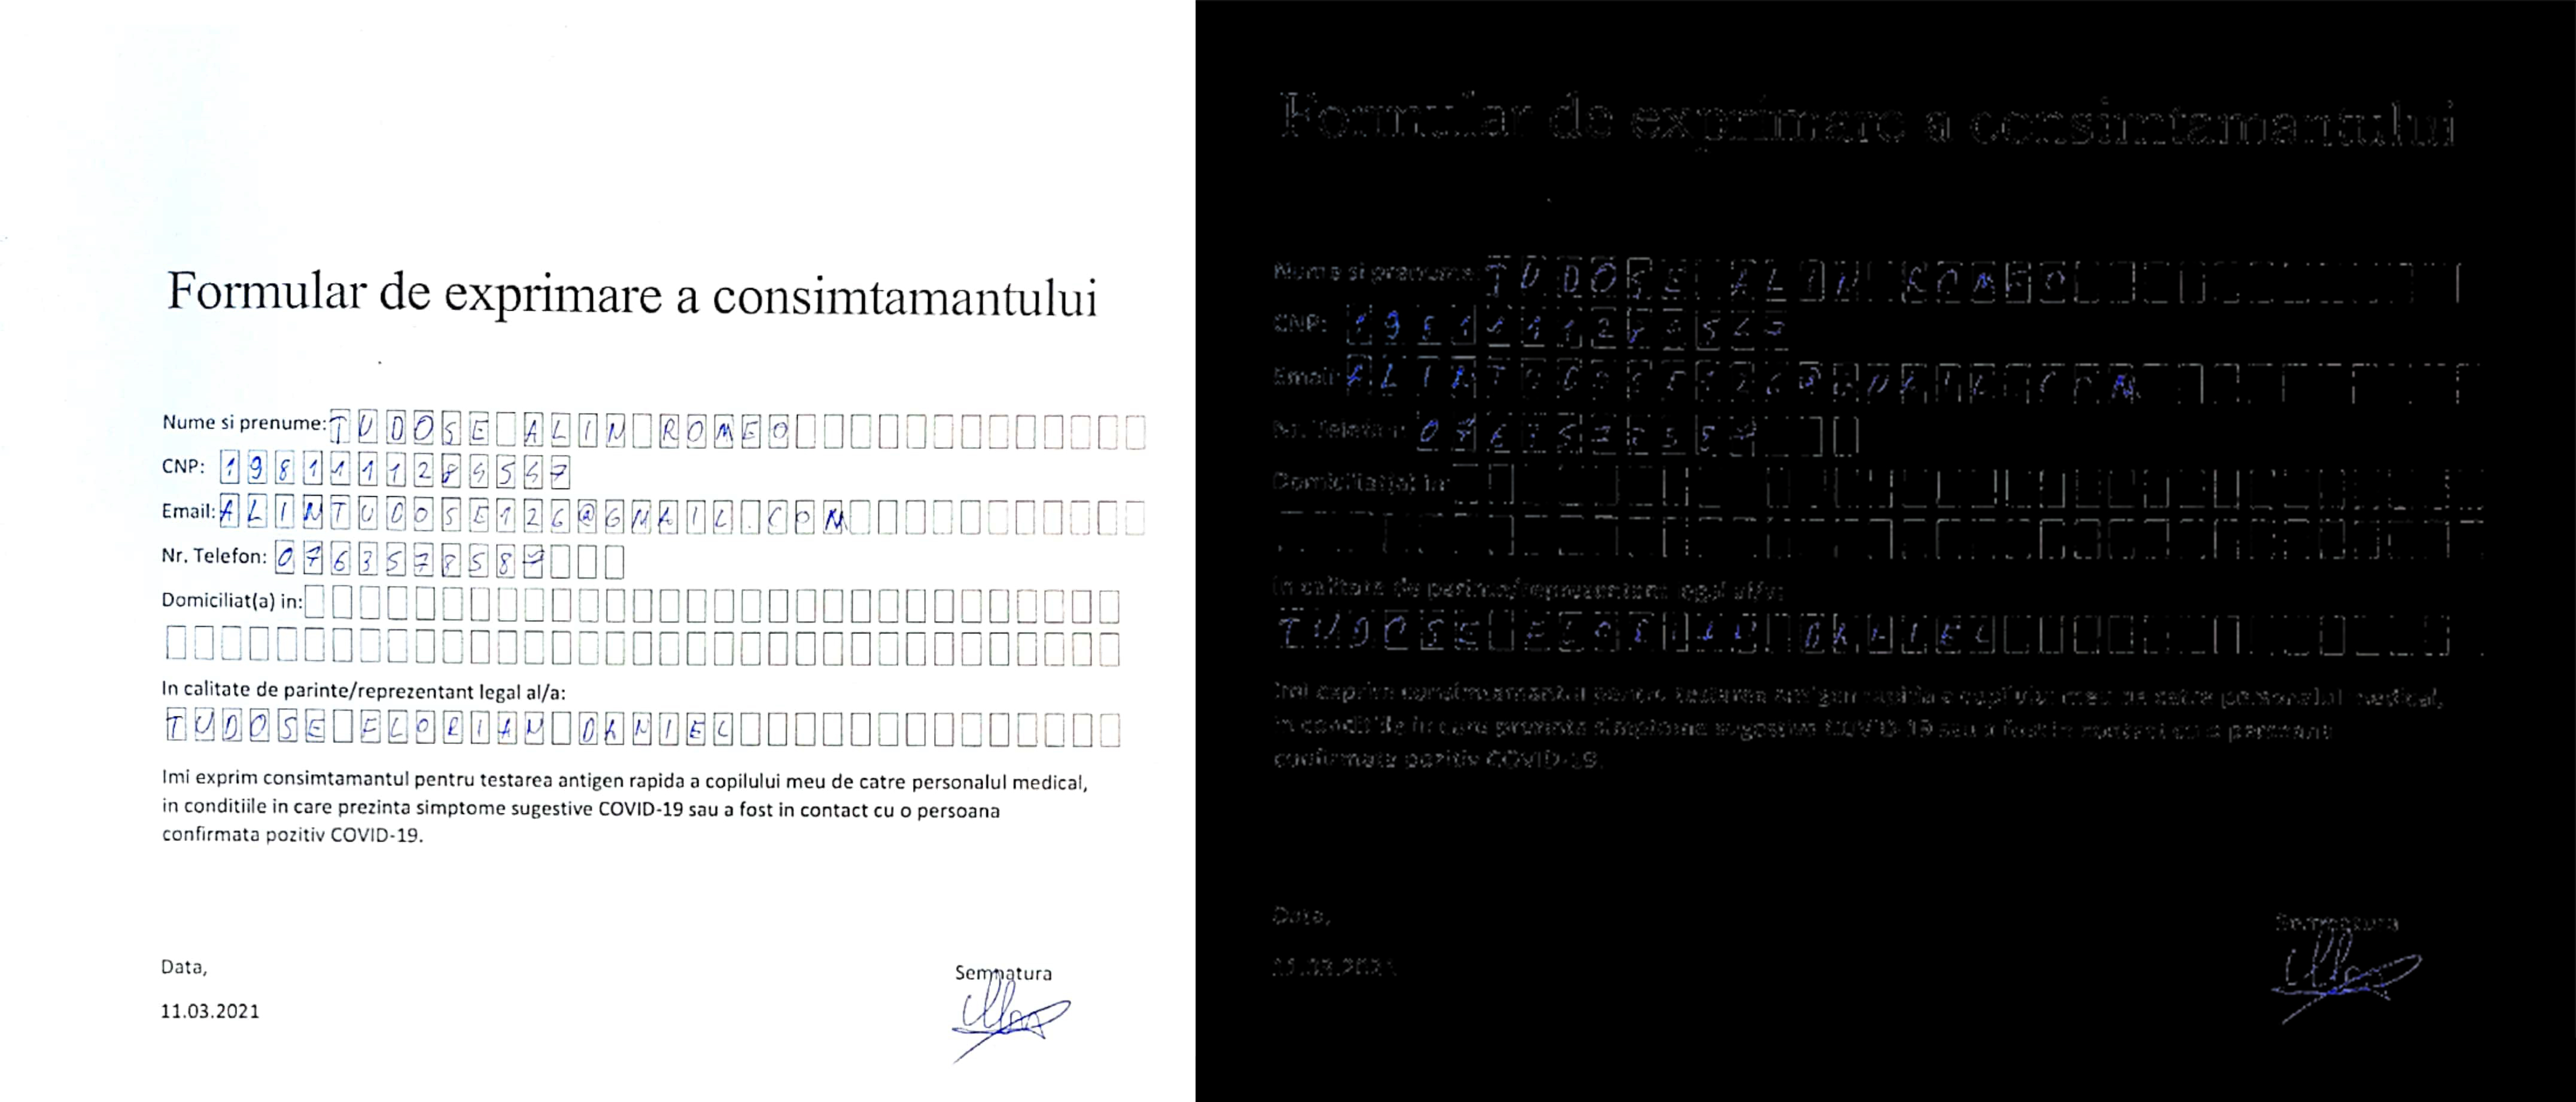 Formular de exprimare a consimtamantului
Nume si prenume: TUDOSE ALIN ROMEO
CNP:
Email: ALINTUDOSE126@GMAIL.COM
Nr. Telefon:
Domiciliat(a) in:
In calitate de parinte/reprezentant legal al/a:
TUDOSE FLORIAN DANIEL
Imi exprim consimtamantul pentru testarea antigen rapida a copilului meu de catre personalul medical,
in conditiile in care prezinta simptome sugestive COVID-19 sau a fost in contact cu o persoana
confirmata pozitiv COVID-19.
Data,
Semnatura
11.03.2021
Formular de exprimare a consimtamantului
Nume si prenume: TUDOSE ALIN ROMEO
CNP:
Email:
Nr. Telefon:
Domiciliat(a) in:
In calitate de parinte/reprezentant legal al/a:
TUDOSE FLORIAN DANIEL
Imi exprim consimtamantul pentru testarea antigen rapida a copilului meu de catre personalul medical,
in conditiile in care prezinta simptome sugestive COVID-19 sau a fost in contact cu o persoana
confirmata pozitiv COVID-19.
Data,
Semnatura
11.03.2021